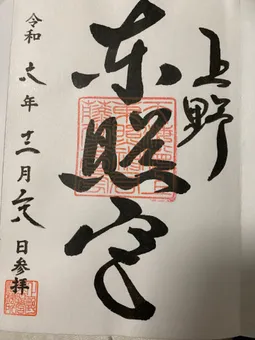 上野
東照宮
令和六年十二月日参拝